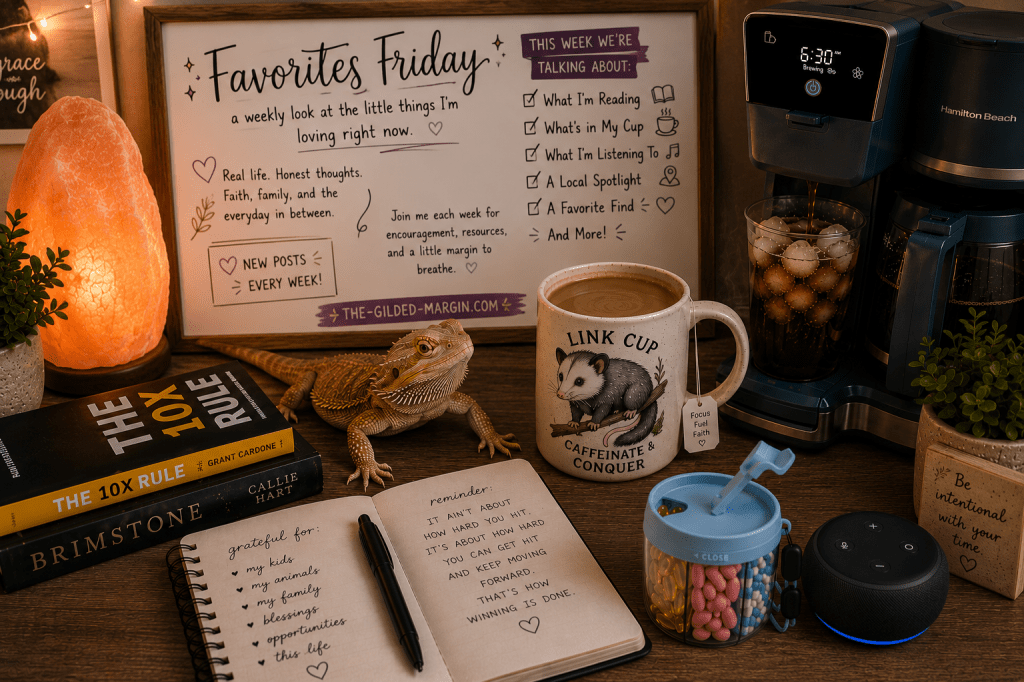 grace
ough
Favorites Friday
a weekly look at the little things I'm
loving right now.
Real life. Honest thoughts.
Faith, family, and the
everyday in between.
NEW POSTS
EVERY WEEK!
Join me each week for
encouragement, resources,
and a little margin to
breathe.
THE-GILDED-MARGIN.COM
THIS WEEK WE'RE
TALKING ABOUT:
What I'm Reading
What's in My Cup
What I'm Listening To
A Local Spotlight
A Favorite Find
And More!
6:30 AM
Brewing
Hamilton Beach
LINK CUP
CAFFEINATE &
CONQUER
Focus
Fuel
Faith
THE
10X
RULE
THE 10X RULE
GRANT CARDONE
BRIMSTONE
CALLIE
HART
grateful for:
my kids
my animals
my family
blessings
opportunities
this life
reminder:
IT AIN'T ABOUT
HOW HARD YOU HIT.
IT'S ABOUT HOW HARD
YOU CAN GET HIT
AND KEEP MOVING
FORWARD.
THAT'S HOW
WINNING IS DONE.
CLOSE
Be
intentional
with your
time.